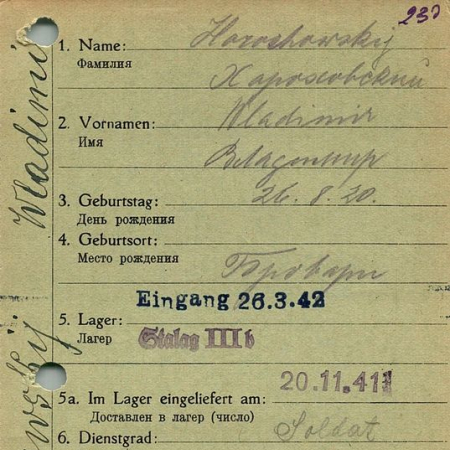 230
1. Name: Horochowskij
Фамилия Хороховский
2. Vornamen: Wladimir
Имя
Владимир
3. Geburtstag: 26. 8. 20.
День рождения
4. Geburtsort:
Место рождения Бровари
Eingang 26.3.42
5. Lager: Stalag III b
Лагер
20.11.41
5a. Im Lager eingeliefert am:
Доставлен в лагер (число)
6. Dienstgrad: Soldat
Wladimi
wskij